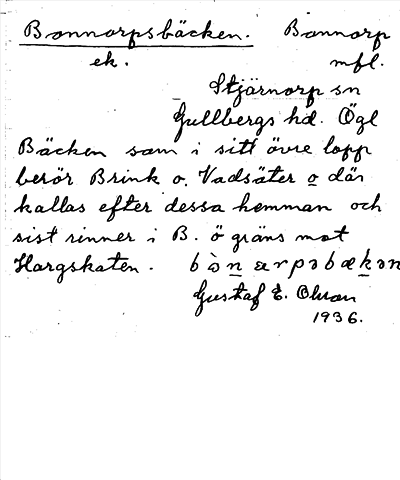 Bonnorpsbäcken. Bonnorp
ek. mfl.
Stjärnorp sn
Gullbergs hd. Ögl
Bäcken som i sitt övre lopp
berör Brink o. Vadsäter o där
kallas efter dessa hemman och
sist rinner i B. ö gräns mot
Hargskaten. bònarpsbækən
Gustaf E. Olson
1936.